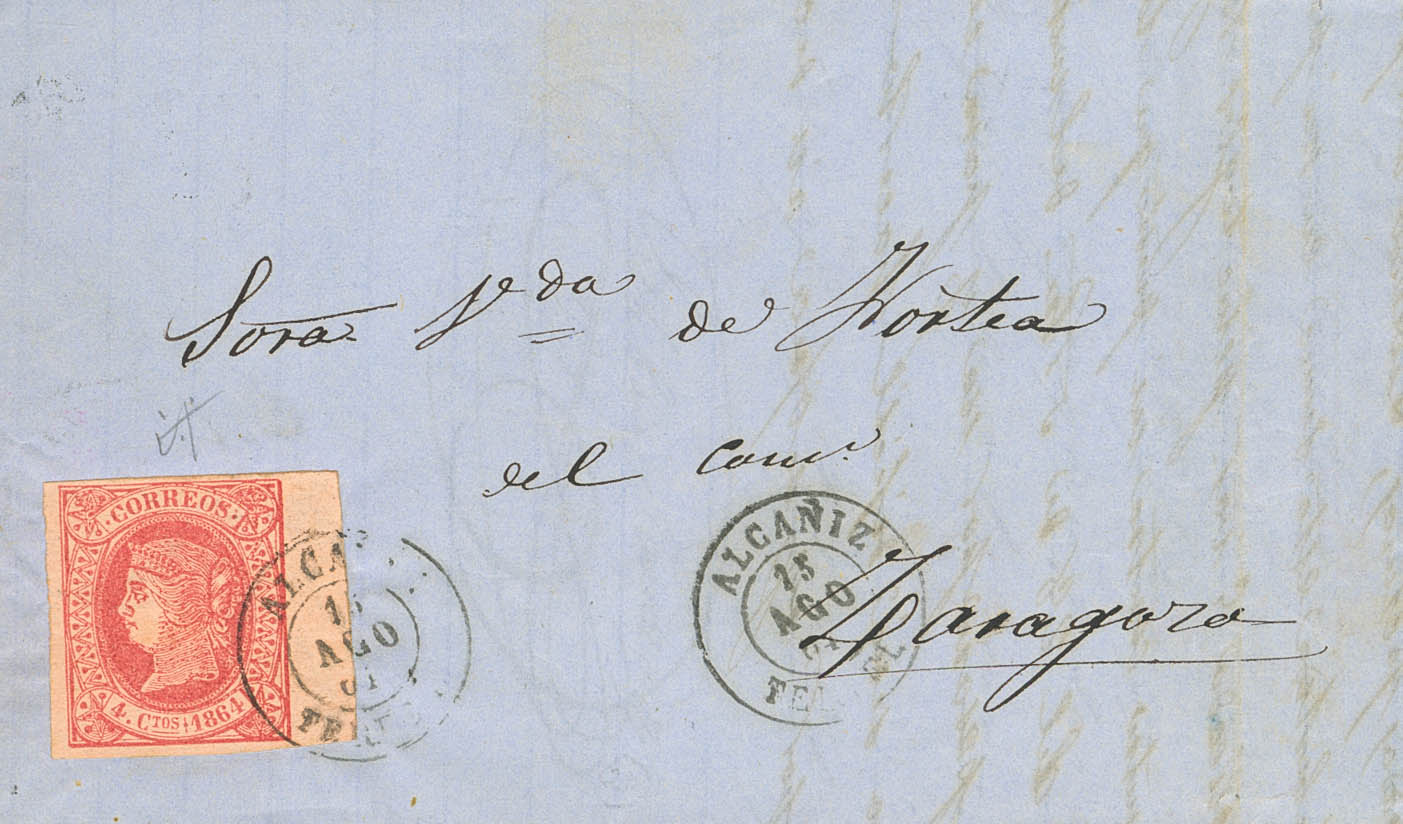 Sora. Vda de Hortea
del comr.
Zaragoza
CORREOS
4. CTOS 1864
ALCAÑIZ
AGO
TERUEL
ALCAÑIZ
15
AGO
TERUEL